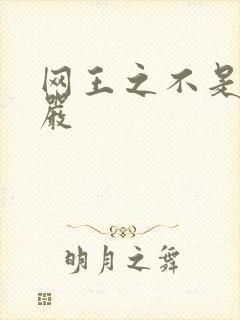 网王之不是
严
明月之舞